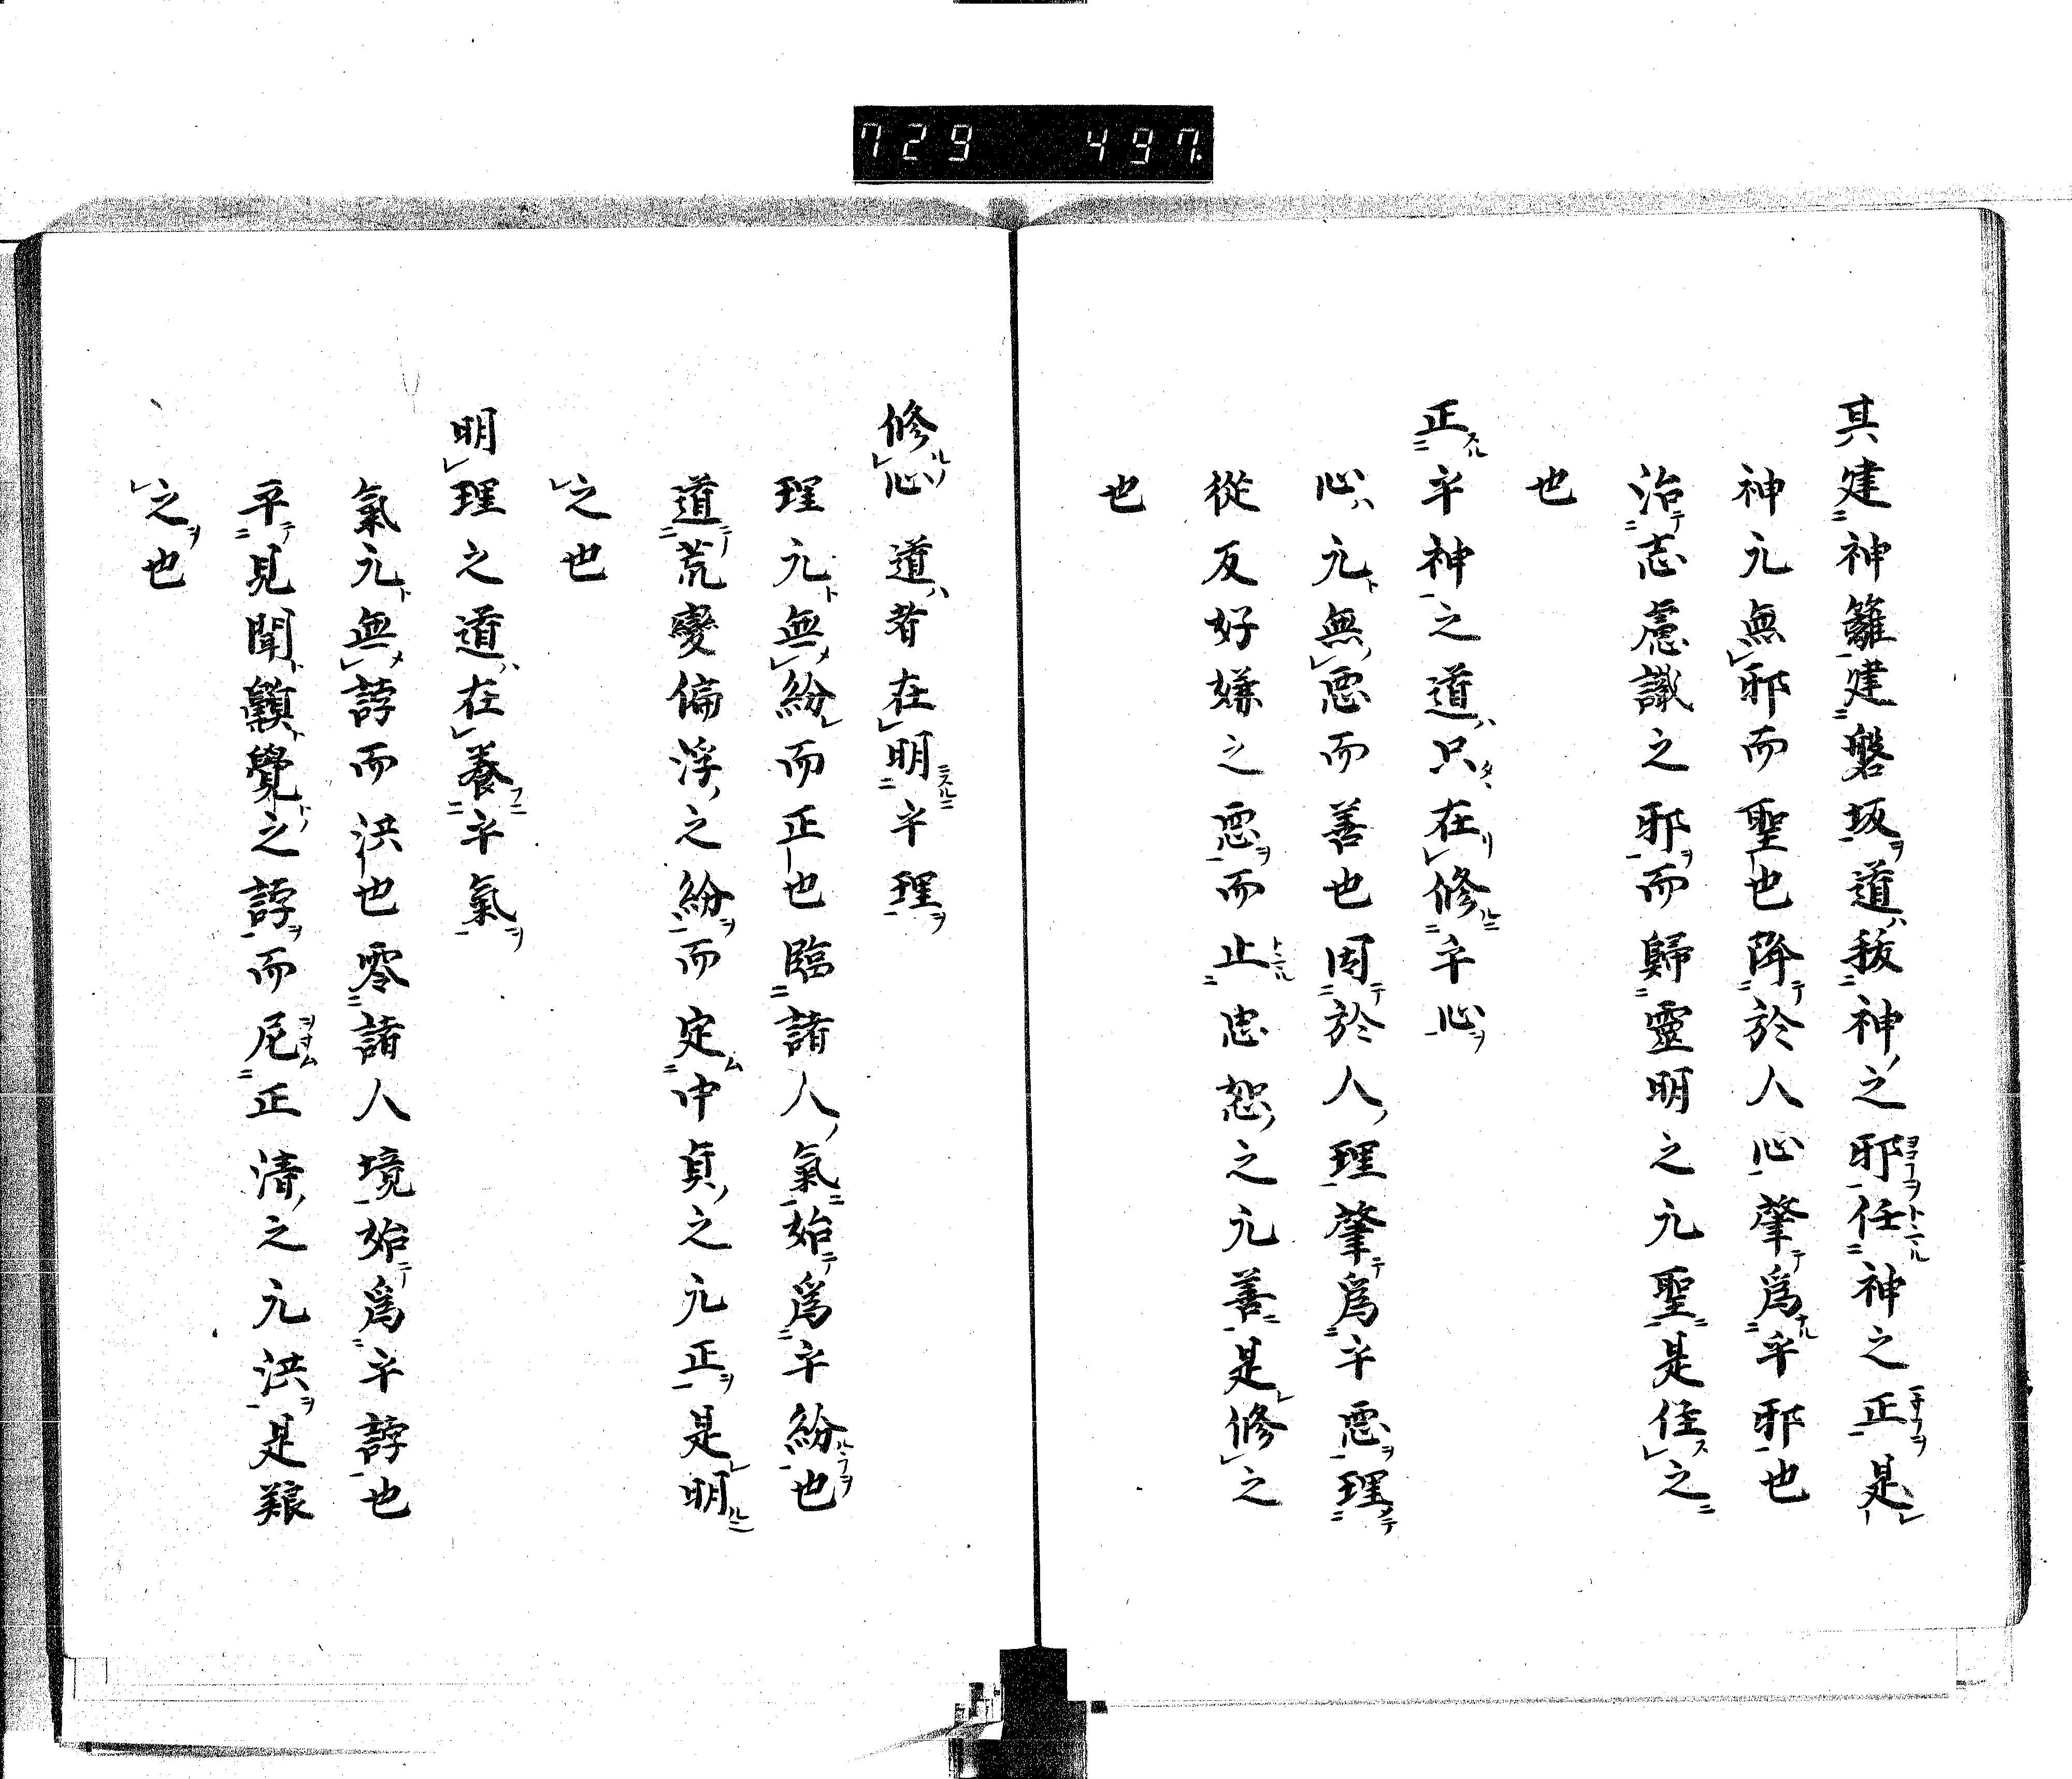 729 497.
其建神籬建磐坂道祓神之邪任神之正是
神元無邪而聖也降於人心肇爲乎邪也
治志慮識之邪而歸靈明之元聖是任之
也
正乎神之道只在修乎心
心元無惡而善也因於人理肇爲乎惡理
從反好嫌之惡而止忠恕之元善是修之
也
修心道者在明乎理
理元無紛而正也臨諸人氣始爲乎紛也
道荒變偏浮之紛而定中貞之元正是明
之也
明理之道在養乎氣
氣元無誖而洪也零諸人境始爲乎誖也
平見聞覺之誖而尼正清之元洪是
之也